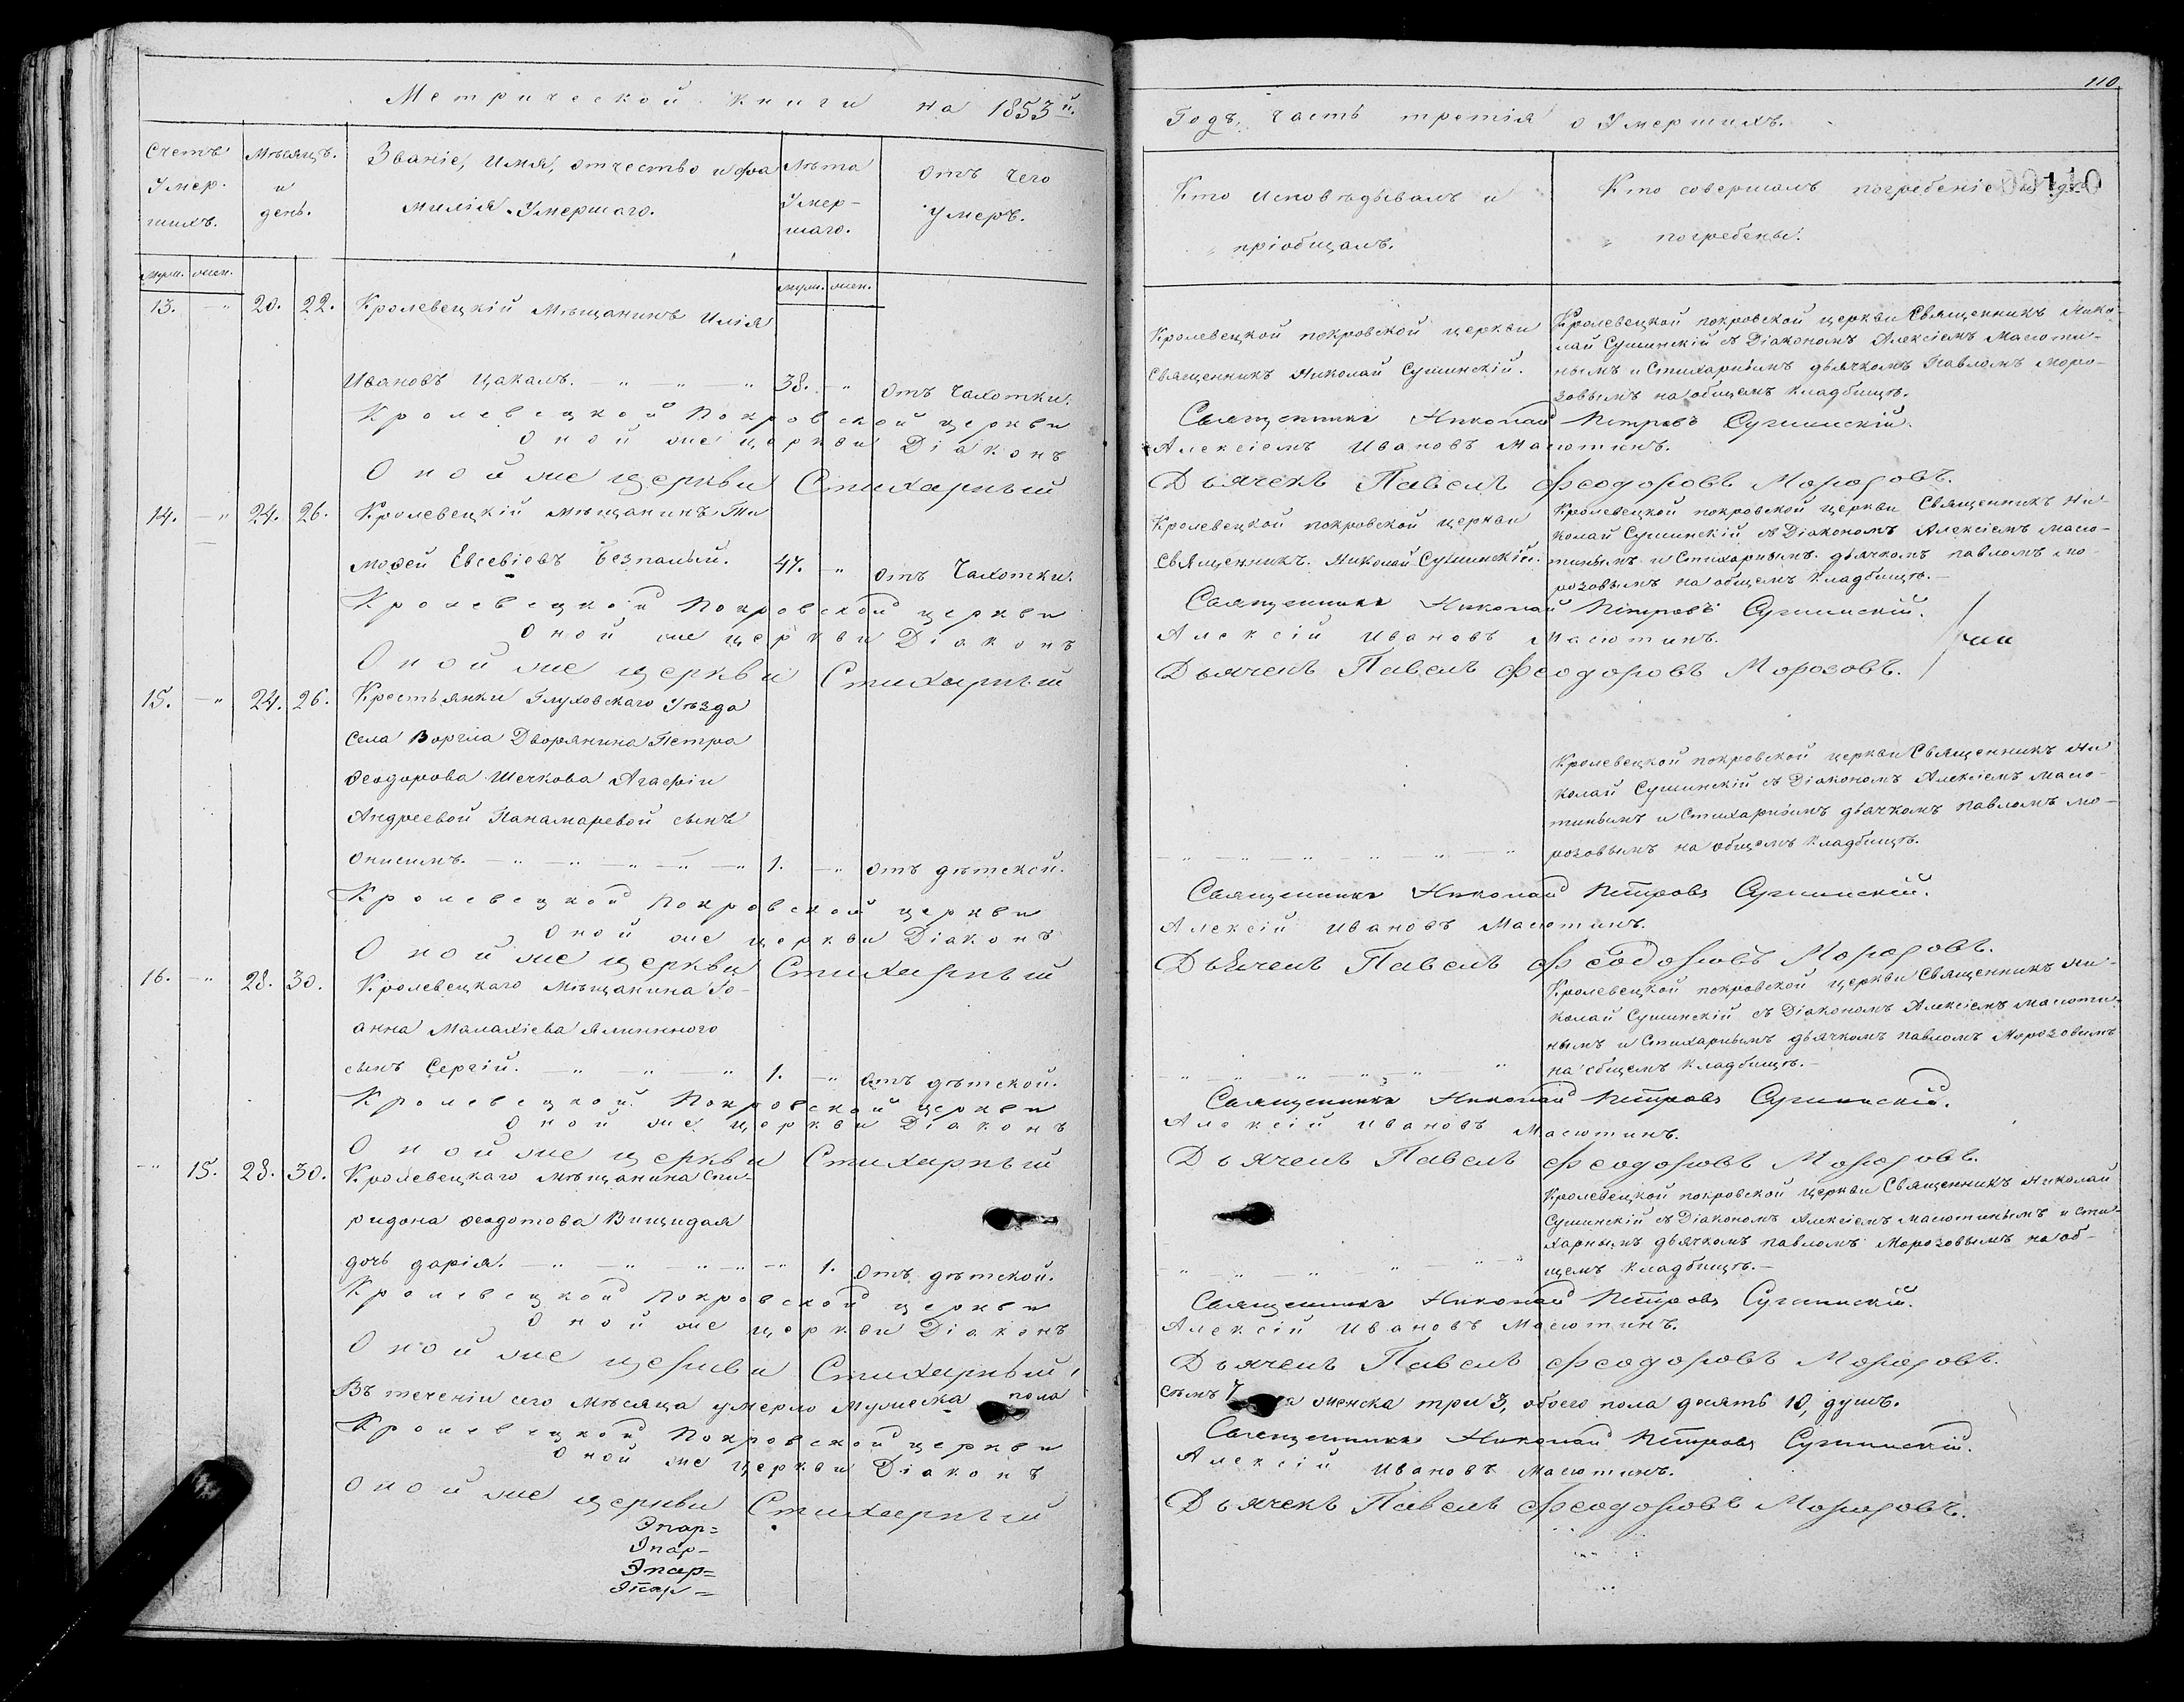 Метрической книги на 1853й.
Счетъ Умер-шихъ.
Мѣсяцъ и день.
Званіе, имя, отчество и фа
милія Умершаго.
Лѣта Умер-шаго.
отъ чего умеръ.
муж. жен.
муж. жен.
13. — „ 20. 22. Кролевецкій Мѣщанинъ Илія
Ивановъ Цакалъ. — „ — „ — „ 38. — „ отъ Чахотки.
Кролевецкой Покровской церкви
Оной же церкви Діаконъ
Оной же церкви Стихарный
14. — „ 24. 26. Кролевецкій мѣщанинъ Ти
моѳей Евсевіовъ Безпалый. 47. — „ отъ Чахотки.
Кролевецкой Покровской церкви
Оной же церкви Діаконъ
Оной же церкви Стихарный
15. — „ 24. 26. Крестьянки Глуховскаго Уѣзда
Села Воргла Дворянина Петра
Ѳеодорова Шечкова Агафіи
Андреевой Панамаревой сынъ
Онисимъ. — „ — „ — „ — „ — „ 1. — „ отъ дѣтской.
Кролевецкой Покровской церкви
Оной же церкви Діаконъ
Оной же церкви Стихарный
16. — „ 28. 30. Кролевецкаго Мѣщанина Іо-
анна Малахіева
сынъ Сергій. — „ — „ — „ 1. — „ отъ дѣтской.
Кролевецкой Покровской церкви
Оной же церкви Діаконъ
Оной же церкви Стихарный
— „ 15. 28. 30. Кролевецкаго мѣщанина Спи-
ридона Ѳеодотова
дочь Дарія. — „ — „ — „ — „ 1. отъ дѣтской.
Кролевецкой Покровской церкви
Оной же церкви Діаконъ
Оной же церкви Стихарный
Въ теченіи сего Мѣсяца умерло Мужеска пола
Кролевецкой Покровской церкви
Оной же церкви Діаконъ
Оной же церкви Стихарный
110
Годъ, часть третія о Умершихъ.
00110
Кто Исповѣдывалъ и
пріобщалъ.
Кто совершалъ погребеніе и гдѣ
погребены.
Кролевецкой покровской церкви
Священникъ Николай Сушинскій.
Кролевецкой покровской церкви Священникъ Нико-
лай Сушинскій съ Діакономъ Алексіемъ Масюти-
нымъ и Стихарнымъ дьячкомъ Павломъ Моро-
зовымъ на общемъ кладбищѣ.
Священникъ Николай Петровъ Сушинскій.
Алексіемъ Ивановъ Масютинъ.
Дьячекъ Павелъ Феодоровъ Морозовъ.
Кролевецкой покровской церкви
Священникъ Николай Сушинскій.
Кролевецкой покровской церкви Священникъ Ни-
колай Сушинскій съ Діакономъ Алексіемъ Масю-
тинымъ и Стихарнымъ дьячкомъ Павломъ Мо-
розовымъ на общемъ кладбищѣ. —
Священникъ Николай Петровъ Сушинскій.
Алексій Ивановъ Масютинъ.
Дьячекъ Павелъ Феодоровъ Морозовъ.
Кролевецкой покровской церкви Священникъ Ни
колай Сушинскій съ Діакономъ Алексіемъ Масю-
тинымъ и Стихарнымъ дьячкомъ Павломъ Мо-
розовымъ на общемъ кладбищѣ.
Священникъ Николай Петровъ Сушинскій.
Алексій Ивановъ Масютинъ.
Дьячекъ Павелъ Феодоровъ Морозовъ.
Кролевецкой покровской церкви Священникъ Ни-
колай Сушинскій съ Діакономъ Алексіемъ Масюти-
нымъ и Стихарнымъ дьячкомъ Павломъ Морозовымъ
на общемъ кладбищѣ. —
Священникъ Николай Петровъ Сушинскій.
Алексій Ивановъ Масютинъ.
Дьячекъ Павелъ Феодоровъ Морозовъ.
Кролевецкой покровской церкви Священникъ Николай
Сушинскій съ Діакономъ Алексіемъ Масютинымъ и Сти-
харнымъ дьячкомъ Павломъ Морозовымъ на об-
щемъ кладбищѣ. —
Священникъ Николай Петровъ Сушинскій.
Алексій Ивановъ Масютинъ.
Дьячекъ Павелъ Феодоровъ Морозовъ.
семъ 7 женска три 3, обоего пола десять 10, душъ.
Священникъ Николай Петровъ Сушинскій.
Алексій Ивановъ Масютинъ.
Дьячекъ Павелъ Феодоровъ Морозовъ.